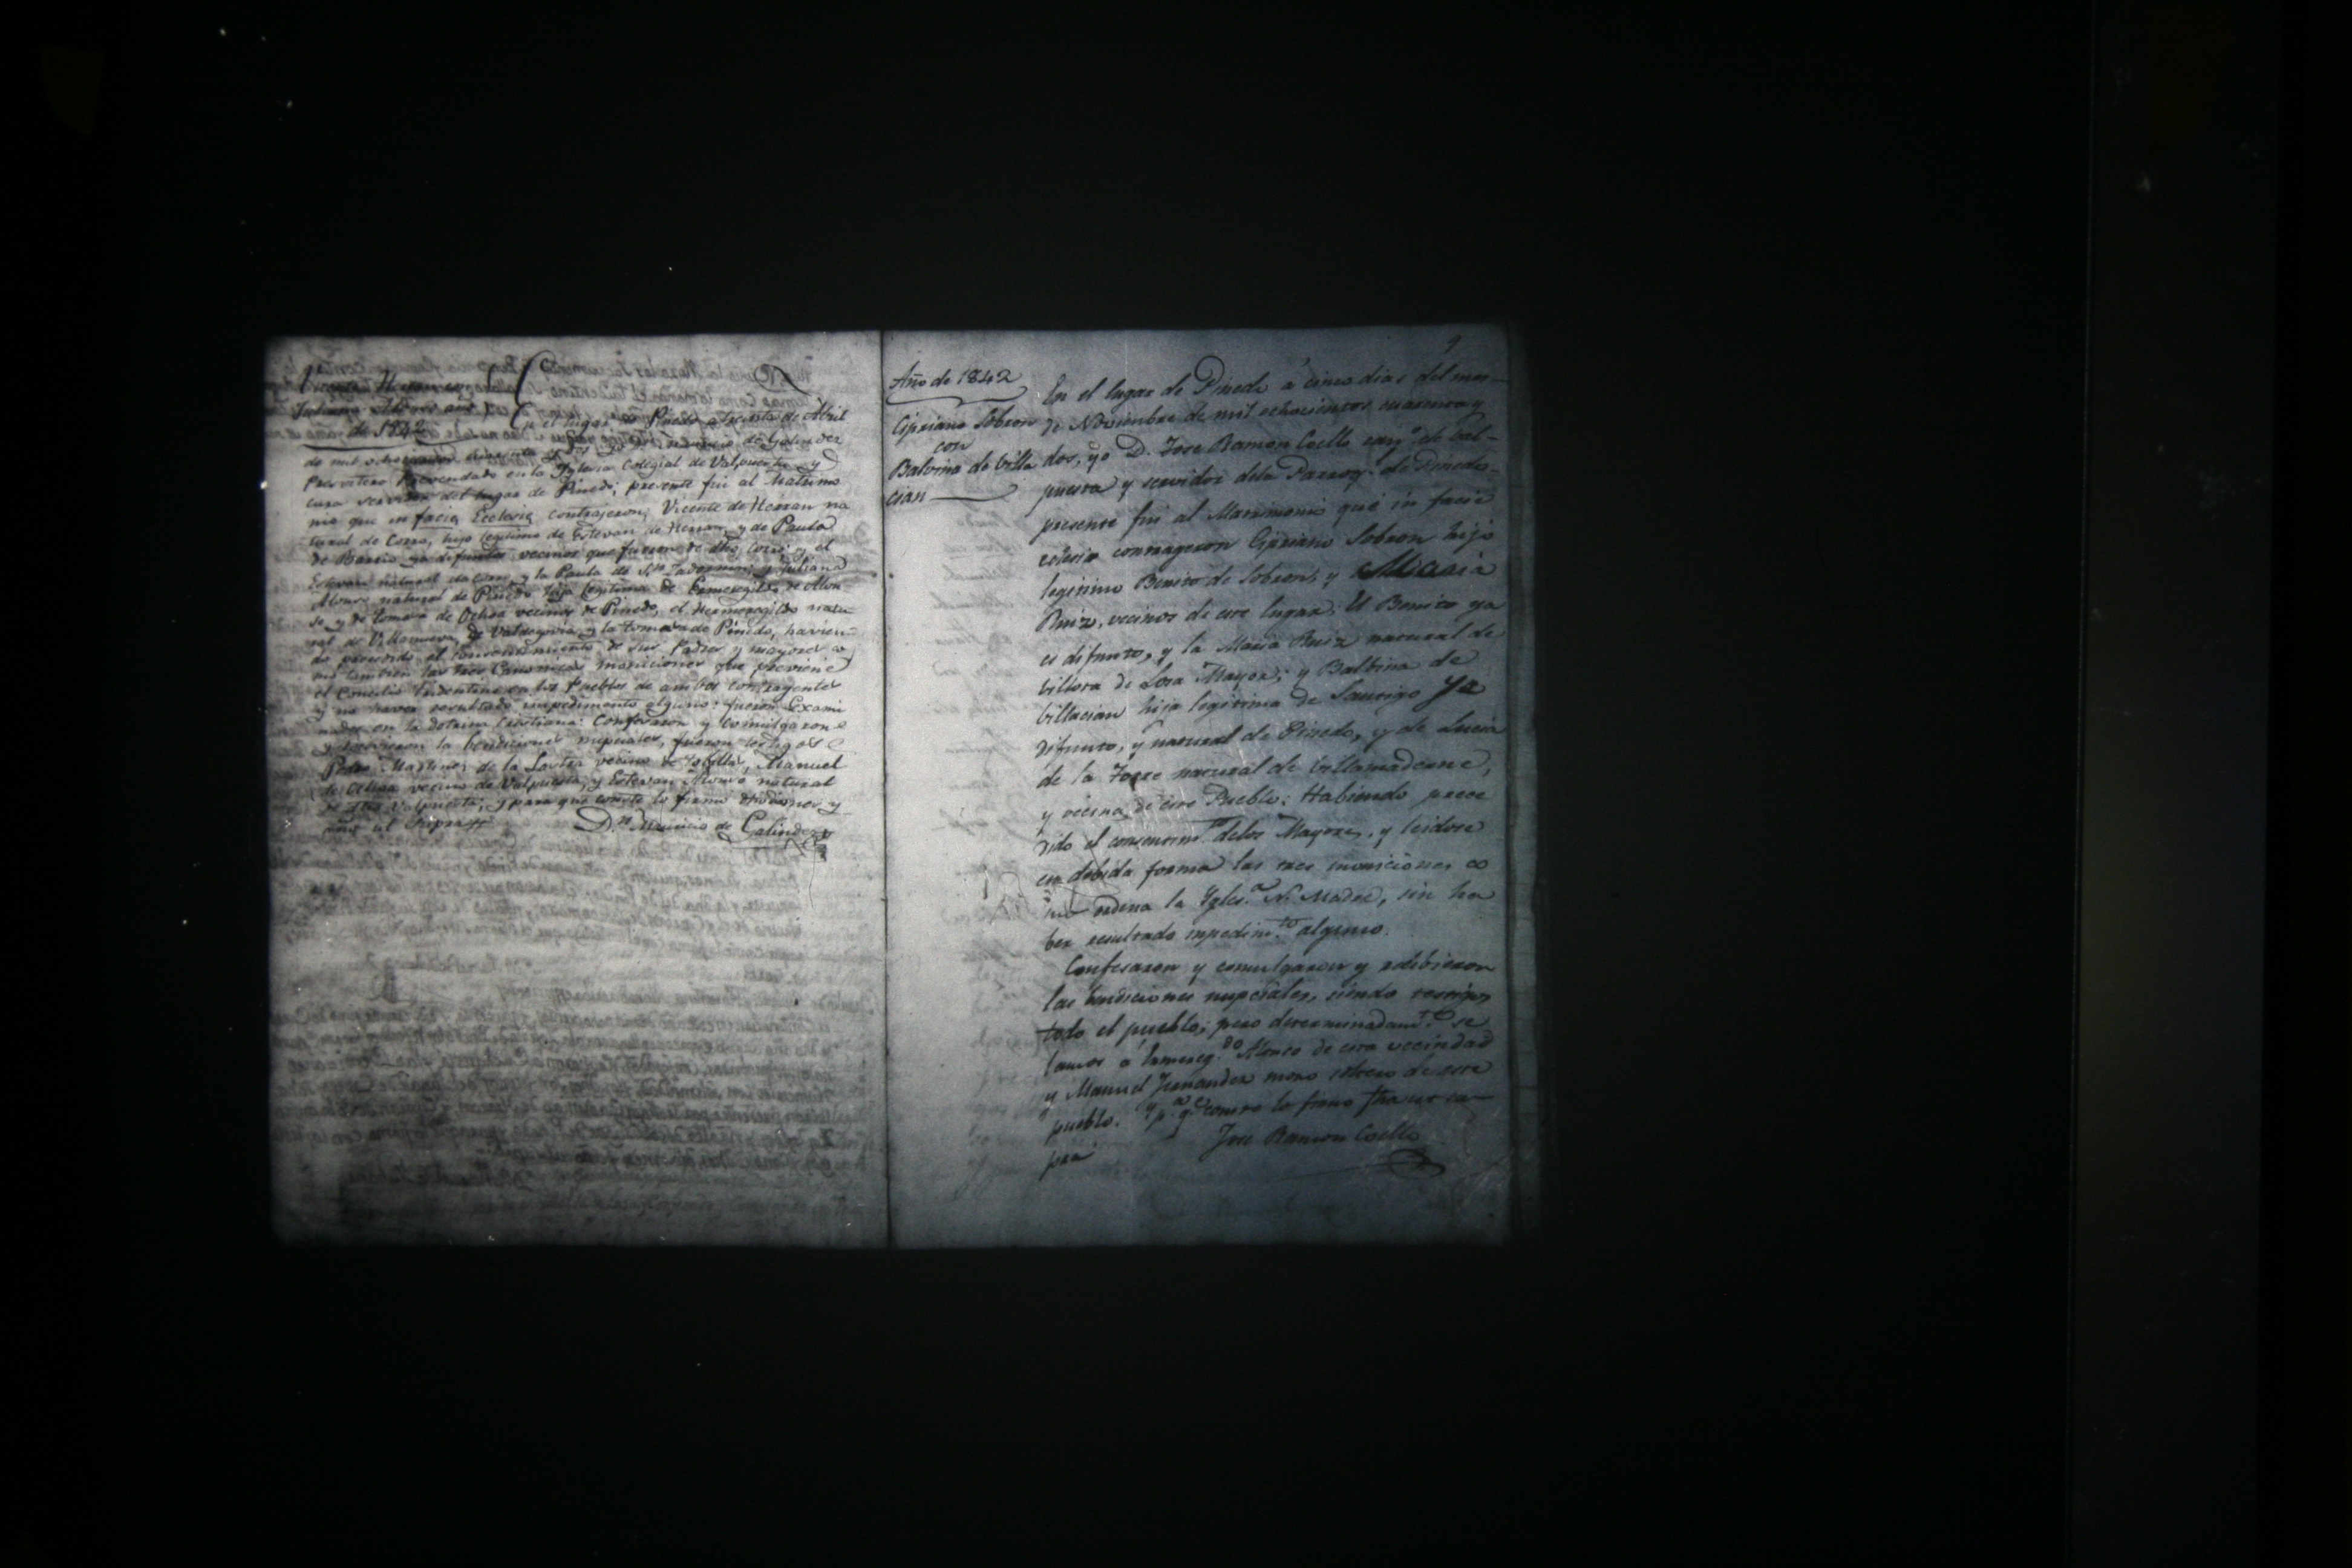 Vicente Herran con
Juliana Alonso año
de 1842
En el lugar de Pinedo a treinta de Abril
de mil ochocientos cuarenta y dos yo de Galindez
Presvitero Prevendado en la Yglesia Colegial de Valpuesta y
cura servidor del lugar de Pinedo; presente fui al Matrimo
nio que in facia Eclesia contrajeron, Vicente de Herran na
tural de Corro, hijo legitimo de Estevan de Herran y de Paula
de Barrio ya difuntos vecinos que fueron de dho Corro y el
Estevan natural de Corro y la Paula de Sn y Juliana
Alonso natural de Pinedo hija legitima de Ermeregildo de Alon
so y de Tomasa de Ochoa vecinos de Pinedo, el Hermeregildo natu
ral de Villanueva de Valdegovia y la tomasa de Pinedo, havien
do precedido el consentimiento de sus Padres y mayores co
mo tambien las tres Canonicas moniciones que previene
el Concilio tridentino en los Pueblos de ambos contrayentes
y no haver resultado impedimento alguno: fueron Exami
nados en la dotrina Cristiana: Confesaron y comulgaron
y recivieron la bendiciones nupciales, fueron testigos
Pedro Martinez de la vecino de Tobillas, Manuel
de Ochoa vecino de Valpuesta, y Estevan Alonso natural
de Valpuesta; y para que conste lo firmo dho dia mes y
año ut supra
Dn Mauricio de Galindez
9
Año de 1842
Cipriano Sobron
con
Balvina de Villa
cian
En el lugar de Pinedo á cinco dias del mes
de Noviembre de mil ochocientos cuarenta y
dos, yo D. Jose Ramon Coello can.º de Val-
puesta y servidor dela Parroq.l de Pinedo
presente fui al Matrimonio que in facie
eclesie contrageron Cipriano Sobron hijo
legitimo Benito de Sobron, y Maria
Ruiz, vecinos de este lugar; El Benito ya
es difunto, y la Maria Ruiz natural de
Villota de Losa Mayor; y Balbina de
Villacian hija legitima de Santiago ya
difunto, y natural de Pinedo, y de Lucia
de la Torre natural de Villamaderne,
y vecina de este Pueblo: Habiendo prece
dido el consentim.to delos Mayores, y leidose
en debida forma las tres moniciones co
mo ordena la Ygles.a N. Madre, sin ha
ber resultado impedim.to alguno.
Confesaron y comulgaron y recibieron
las bendiciones nupciales, siendo testigos
todo el pueblo; pero determinadam.te se
lamos á Ermereg.do Alonso de esta vecindad
y Manuel Fernandez mozo soltero de este
pueblo. Y p.a q.e conste lo firmo fha ut su
pra
Jose Ramon Coello